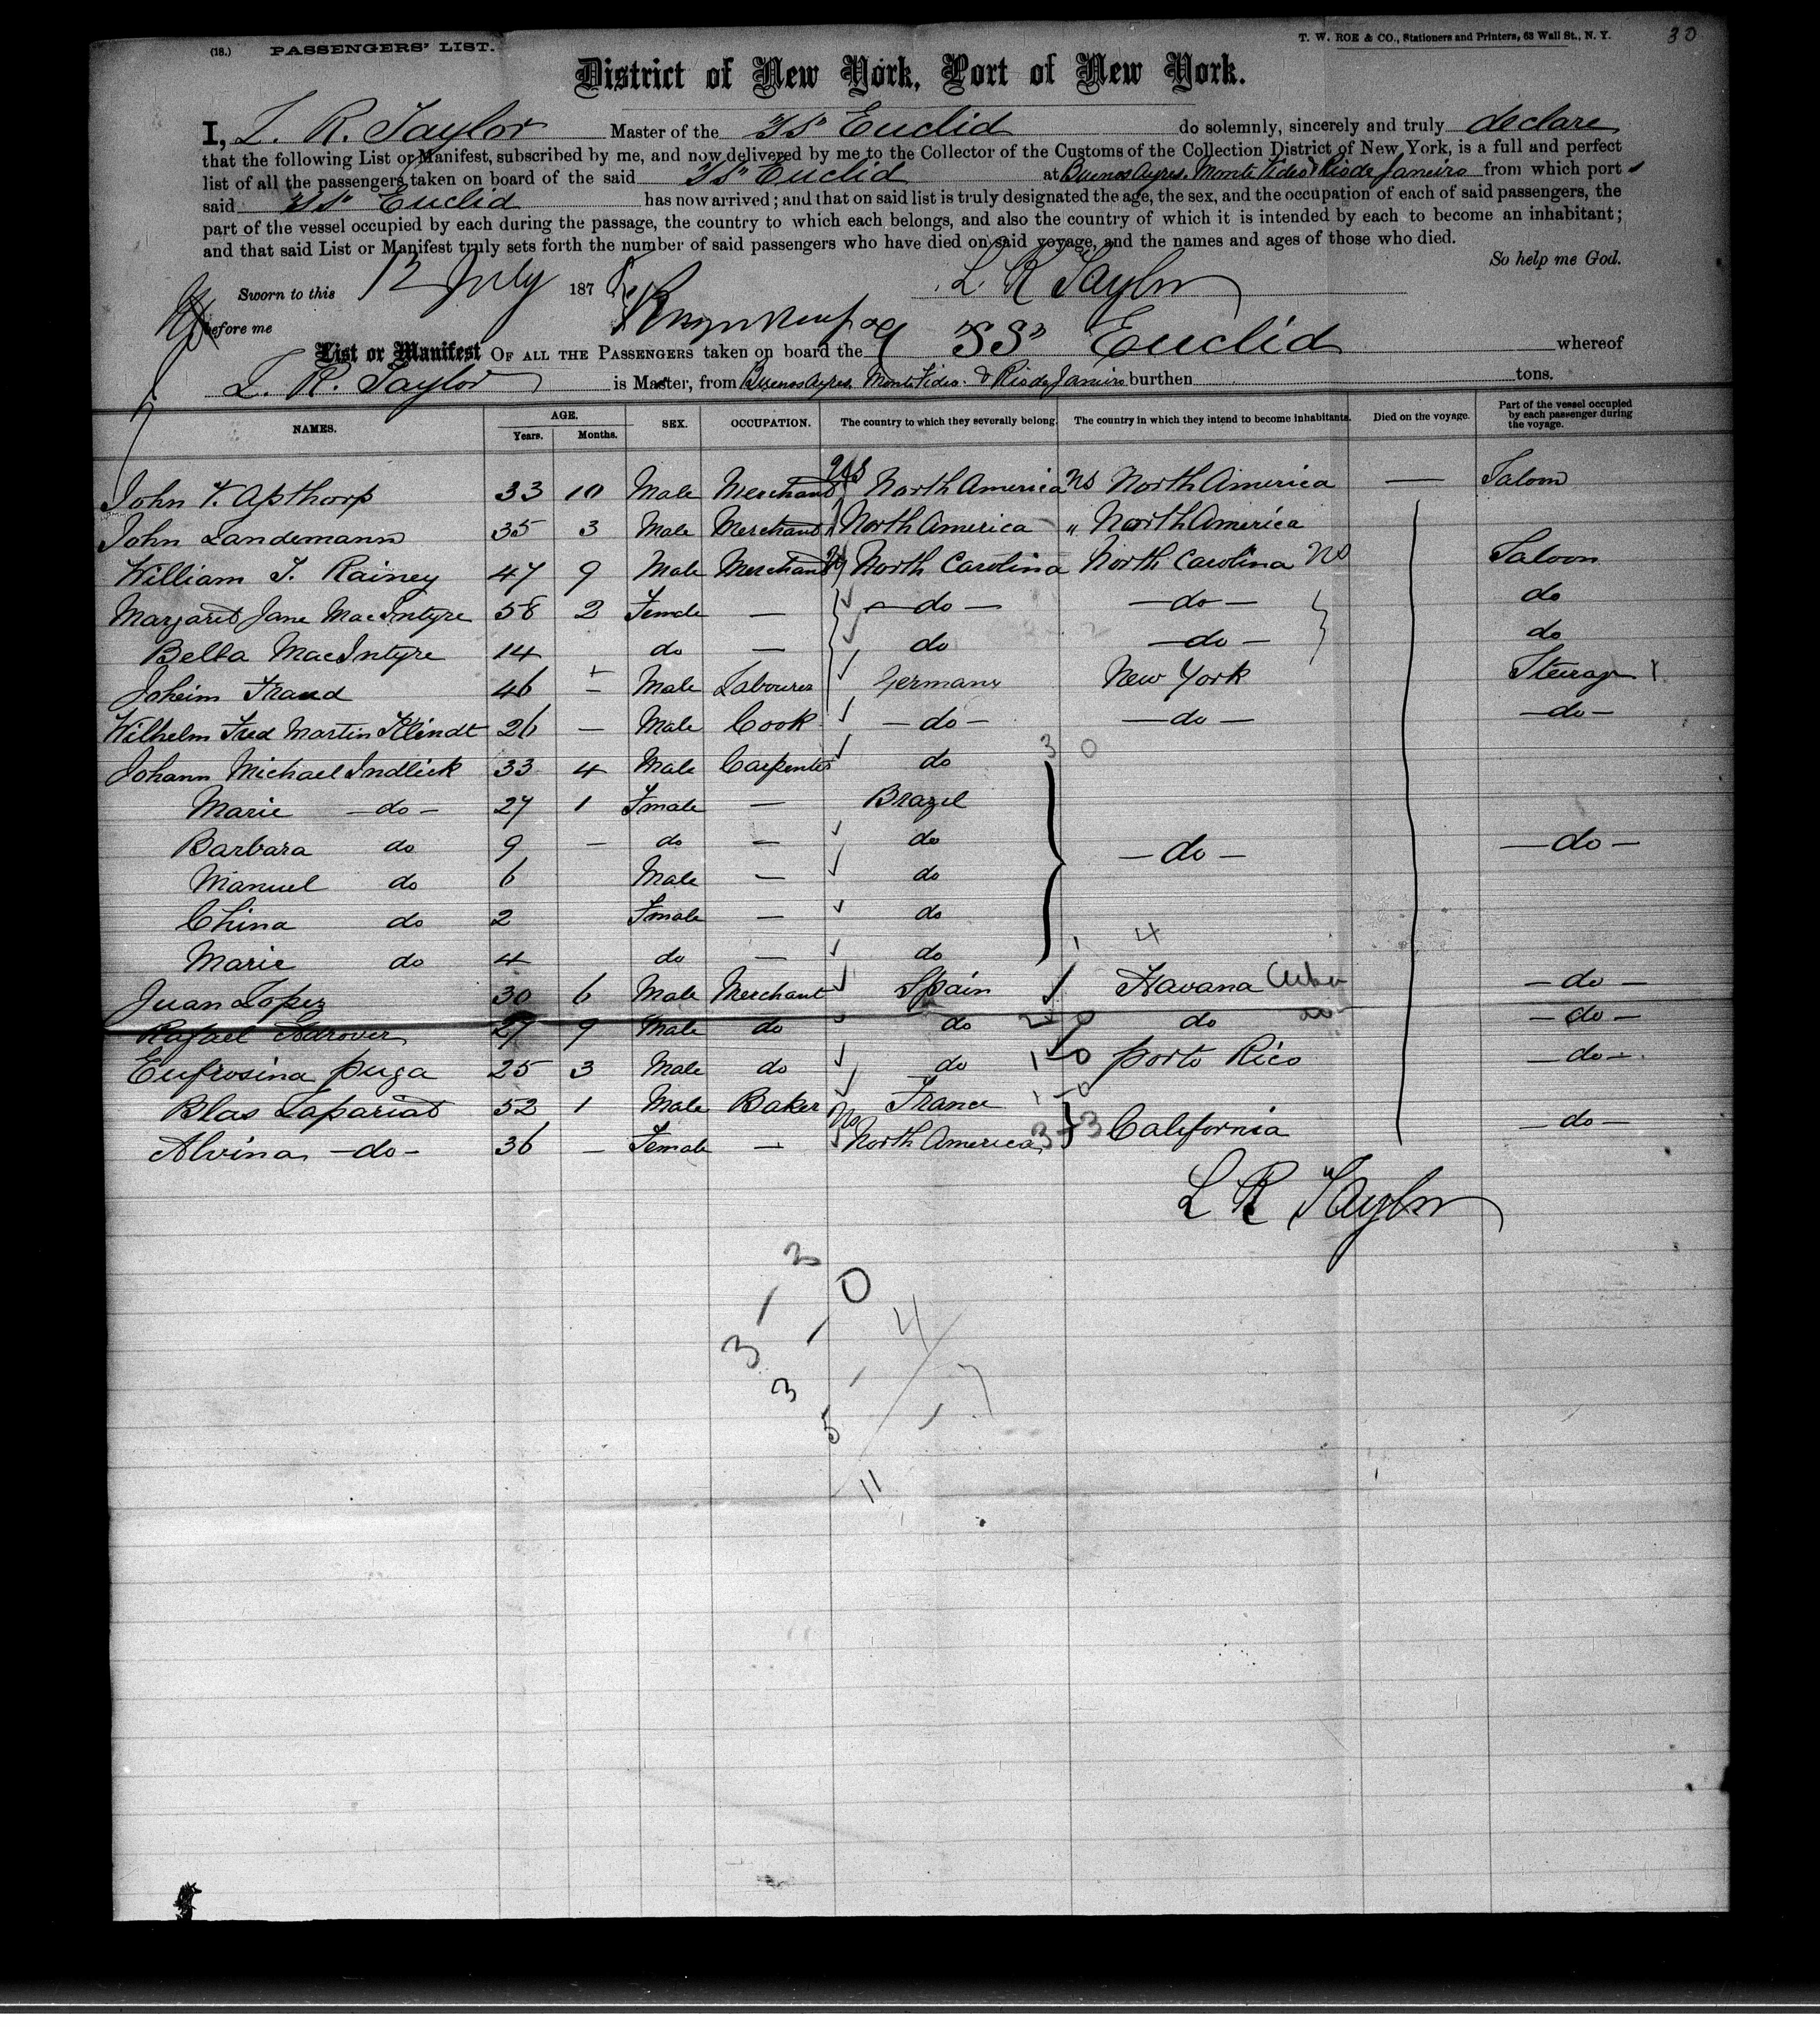 (18.) PASSENGERS' LIST.
T. W. ROE & CO., Stationers and Printers, 63 Wall St., N. Y. 30
District of New York, Port of New York.
I, L. R. Taylor Master of the "SS" Euclid do solemnly, sincerely and truly declare
that the following List or Manifest, subscribed by me, and now delivered by me to the Collector of the Customs of the Collection District of New York, is a full and perfect
list of all the passengers taken on board of the said "SS" Euclid at Buenos Ayres, Monte Video & Rio de Janeiro from which port s
said "SS" Euclid has now arrived; and that on said list is truly designated the age, the sex, and the occupation of each of said passengers, the
part of the vessel occupied by each during the passage, the country to which each belongs, and also the country of which it is intended by each to become an inhabitant;
and that said List or Manifest truly sets forth the number of said passengers who have died on said voyage, and the names and ages of those who died.
So help me God.
Sworn to this 12 July 187 L. R Taylor
before me
List or Manifest OF ALL THE PASSENGERS taken on board the "SS" Euclid whereof
L. R. Taylor is Master, from Buenos Ayres, Monte Video. & Rio de Janeiro burthen tons.
NAMES. AGE. Years. Months. SEX. OCCUPATION. The country to which they severally belong. The country in which they intend to become inhabitants. Died on the voyage. Part of the vessel occupied by each passenger during the voyage.
John F. Apthorp 33 10 Male Merchant US North America US North America — Saloon
John Landemann 35 3 Male Merchant North America " North America
William T. Rainey 47 9 Male Merchant North Carolina North Carolina US Saloon
Margaret Jane MacIntyre 58 2 Female — — do — — do — do
Bella MacIntyre 14 do — do — do — do
Joheim Fraud 46 — Male Labourer Germany New York Steerage
Wilhelm Fred Martin Klindt 26 — Male Cook — do — — do — — do —
Johann Michael Indlick 33 4 Male Carpenter do 3 0
Marie — do — 27 1 Female — Brazil
Barbara do 9 — do — do — do — — do —
Manuel do 6 Male — do
China do 2 Female — do
Marie do 4 do — do 1 4
Juan Lopez 30 6 Male Merchant Spain Havana Cuba — do —
Rafael Adrover 27 9 Male do do 2 0 do do — do —
Eufrosina Puga 25 3 Male do do 1 0 Porto Rico — do —
Blas Lapariad 52 1 Male Baker France 1 0
Alvina — do — 36 — Female — US North America 3 3 California — do —
L R Taylor
3 0
1 4
3 1
3
5
11